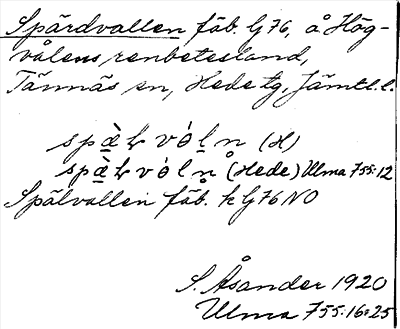 Spärdvallen fäb. G 76, å Hög-
vålens renbetesland,
Tännäs sn, Hede tg, Jämtl. l.
spæ̀ƚ vóḷn (H)
spæ̀ƚ vóḷn̥ (Hede) Ulma 755:12
Spälvallen fäb. k G 76 NO
S. Åsander 1920
Ulma 755:16:25